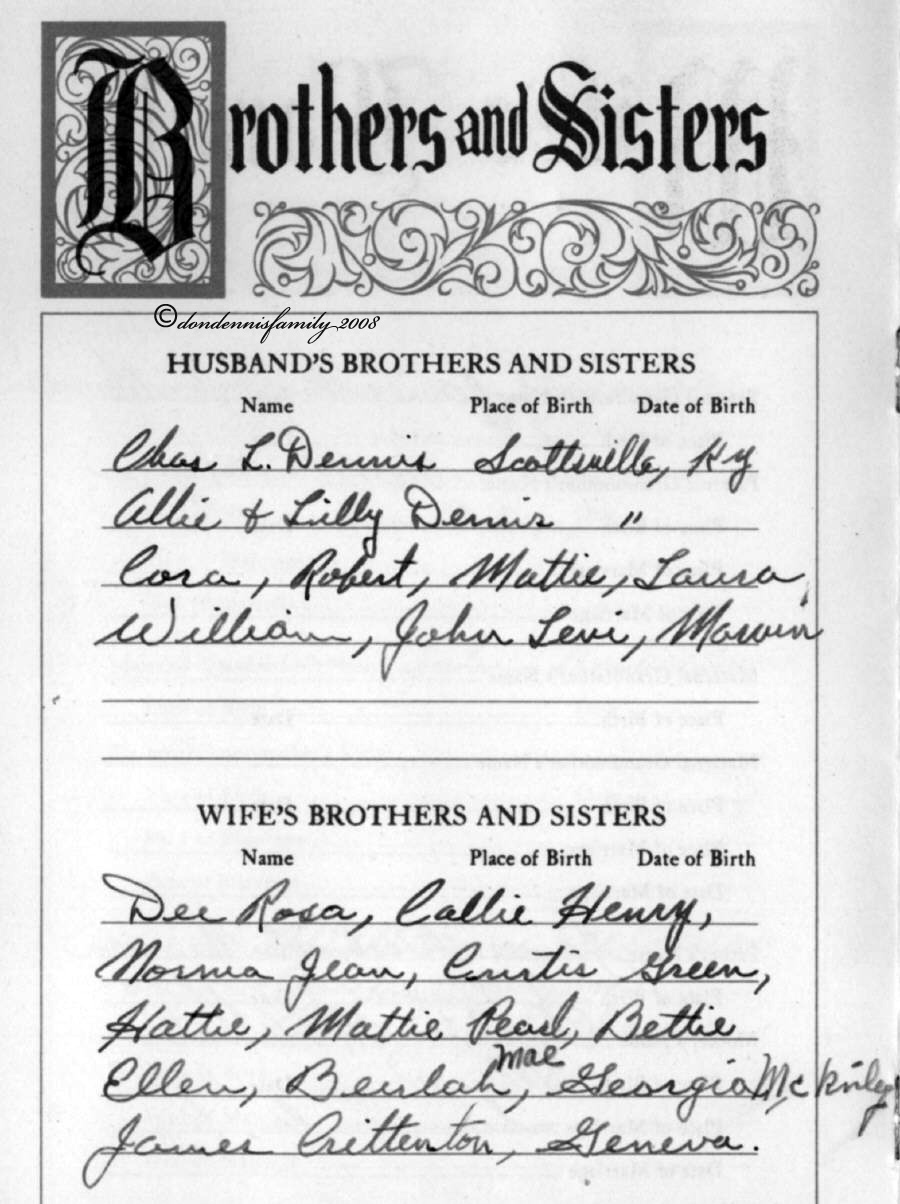 Brothers and Sisters
©dondennisfamily 2008
HUSBAND'S BROTHERS AND SISTERS
Name Place of Birth Date of Birth
Chas L. Dennis Scottsville, Ky
Allie & Lilly Dennis "
Cora, Robert, Mattie, Laura,
William, John Levi, Marvin
WIFE'S BROTHERS AND SISTERS
Name Place of Birth Date of Birth
Dee Rosa, Callie Henry,
Norma Jean, Curtis Green,
Hattie, Mattie Pearl, Bettie
Ellen, Beulah Mae, Georgia McKinley
James Crittenton, Geneva.